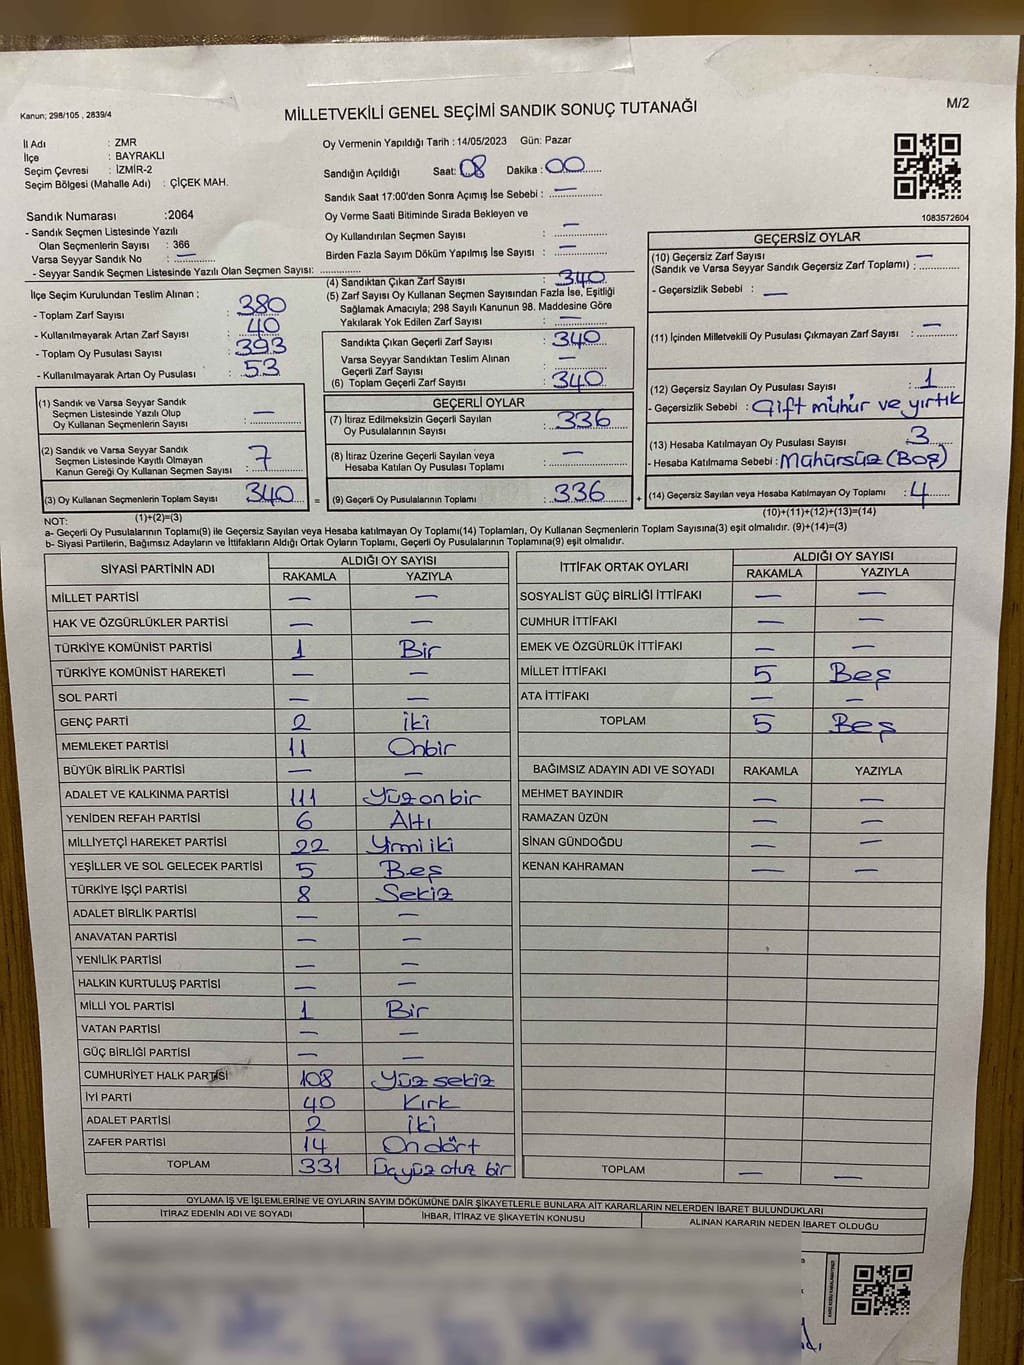 MİLLETVEKİLİ GENEL SEÇİMİ SANDIK SONUÇ TUTANAĞI
M/2
Kanun; 298/105 , 2839/4
İl Adı : ZMR
İlçe : BAYRAKLI
Seçim Çevresi : İZMİR-2
Seçim Bölgesi (Mahalle Adı) : ÇİÇEK MAH.
Sandık Numarası :2064
- Sandık Seçmen Listesinde Yazılı
Olan Seçmenlerin Sayısı : 366
Varsa Seyyar Sandık No : —
- Seyyar Sandık Seçmen Listesinde Yazılı Olan Seçmen Sayısı: ..............
İlçe Seçim Kurulundan Teslim Alınan ;
- Toplam Zarf Sayısı : 380
- Kullanılmayarak Artan Zarf Sayısı : 40
- Toplam Oy Pusulası Sayısı : 393
- Kullanılmayarak Artan Oy Pusulası : 53
(1) Sandık ve Varsa Seyyar Sandık
Seçmen Listesinde Yazılı Olup
Oy Kullanan Seçmenlerin Sayısı : —
(2) Sandık ve Varsa Seyyar Sandık
Seçmen Listesinde Kayıtlı Olmayan
Kanun Gereği Oy Kullanan Seçmen Sayısı : 7
(3) Oy Kullanan Seçmenlerin Toplam Sayısı 340
(1)+(2)=(3)
Oy Vermenin Yapıldığı Tarih : 14/05/2023 Gün: Pazar
Sandığın Açıldığı Saat: 08 Dakika : 00
Sandık Saat 17:00'den Sonra Açımış İse Sebebi : —
Oy Verme Saati Bitiminde Sırada Bekleyen ve
Oy Kullandırılan Seçmen Sayısı : —
Birden Fazla Sayım Döküm Yapılmış İse Sayısı : —
(4) Sandıktan Çıkan Zarf Sayısı : 340
(5) Zarf Sayısı Oy Kullanan Seçmen Sayısından Fazla İse, Eşitliği
Sağlamak Amacıyla; 298 Sayılı Kanunun 98. Maddesine Göre
Yakılarak Yok Edilen Zarf Sayısı : —
Sandıkta Çıkan Geçerli Zarf Sayısı : 340
Varsa Seyyar Sandıktan Teslim Alınan
Geçerli Zarf Sayısı : —
(6) Toplam Geçerli Zarf Sayısı : 340
GEÇERLİ OYLAR
(7) İtiraz Edilmeksizin Geçerli Sayılan
Oy Pusulalarının Sayısı : 336
(8) İtiraz Üzerine Geçerli Sayılan veya
Hesaba Katılan Oy Pusulası Toplamı : —
= (9) Geçerli Oy Pusulalarının Toplamı : 336 +
1083572604
GEÇERSİZ OYLAR
(10) Geçersiz Zarf Sayısı
(Sandık ve Varsa Seyyar Sandık Geçersiz Zarf Toplamı) : —
- Geçersizlik Sebebi : —
(11) İçinden Milletvekili Oy Pusulası Çıkmayan Zarf Sayısı : —
(12) Geçersiz Sayılan Oy Pusulası Sayısı : 1
- Geçersizlik Sebebi : Çift mühür ve yırtık
(13) Hesaba Katılmayan Oy Pusulası Sayısı : 3
- Hesaba Katılmama Sebebi : Mühürsüz (Boş)
(14) Geçersiz Sayılan veya Hesaba Katılmayan Oy Toplamı : 4
(10)+(11)+(12)+(13)=(14)
NOT:
a- Geçerli Oy Pusulalarının Toplamı(9) ile Geçersiz Sayılan veya Hesaba katılmayan Oy Toplamı(14) Toplamları, Oy Kullanan Seçmenlerin Toplam Sayısına(3) eşit olmalıdır. (9)+(14)=(3)
b- Siyasi Partilerin, Bağımsız Adayların ve İttifakların Aldığı Ortak Oyların Toplamı, Geçerli Oy Pusulalarının Toplamına(9) eşit olmalıdır.
SİYASİ PARTİNİN ADI ALDIĞI OY SAYISI
RAKAMLA YAZIYLA
MİLLET PARTİSİ — —
HAK VE ÖZGÜRLÜKLER PARTİSİ — —
TÜRKİYE KOMÜNİST PARTİSİ 1 Bir
TÜRKİYE KOMÜNİST HAREKETİ — —
SOL PARTİ — —
GENÇ PARTİ 2 iki
MEMLEKET PARTİSİ 11 Onbir
BÜYÜK BİRLİK PARTİSİ — —
ADALET VE KALKINMA PARTİSİ 111 Yüz on bir
YENİDEN REFAH PARTİSİ 6 Altı
MİLLİYETÇİ HAREKET PARTİSİ 22 Yirmi iki
YEŞİLLER VE SOL GELECEK PARTİSİ 5 Beş
TÜRKİYE İŞÇİ PARTİSİ 8 Sekiz
ADALET BİRLİK PARTİSİ — —
ANAVATAN PARTİSİ — —
YENİLİK PARTİSİ — —
HALKIN KURTULUŞ PARTİSİ — —
MİLLİ YOL PARTİSİ 1 Bir
VATAN PARTİSİ — —
GÜÇ BİRLİĞİ PARTİSİ — —
CUMHURİYET HALK PARTİSİ 108 Yüz sekiz
İYİ PARTİ 40 Kırk
ADALET PARTİSİ 2 iki
ZAFER PARTİSİ 14 On dört
TOPLAM 331 Üçyüz otuz bir
İTTİFAK ORTAK OYLARI ALDIĞI OY SAYISI
RAKAMLA YAZIYLA
SOSYALİST GÜÇ BİRLİĞİ İTTİFAKI — —
CUMHUR İTTİFAKI — —
EMEK VE ÖZGÜRLÜK İTTİFAKI — —
MİLLET İTTİFAKI 5 Beş
ATA İTTİFAKI — —
TOPLAM 5 Beş
BAĞIMSIZ ADAYIN ADI VE SOYADI RAKAMLA YAZIYLA
MEHMET BAYINDIR — —
RAMAZAN ÜZÜN — —
SİNAN GÜNDOĞDU — —
KENAN KAHRAMAN — —
TOPLAM — —
OYLAMA İŞ VE İŞLEMLERİNE VE OYLARIN SAYIM DÖKÜMÜNE DAİR ŞİKAYETLERLE BUNLARA AİT KARARLARIN NELERDEN İBARET BULUNDUKLARI
İTİRAZ EDENİN ADI VE SOYADI İHBAR, İTİRAZ VE ŞİKAYETİN KONUSU ALINAN KARARIN NEDEN İBARET OLDUĞU